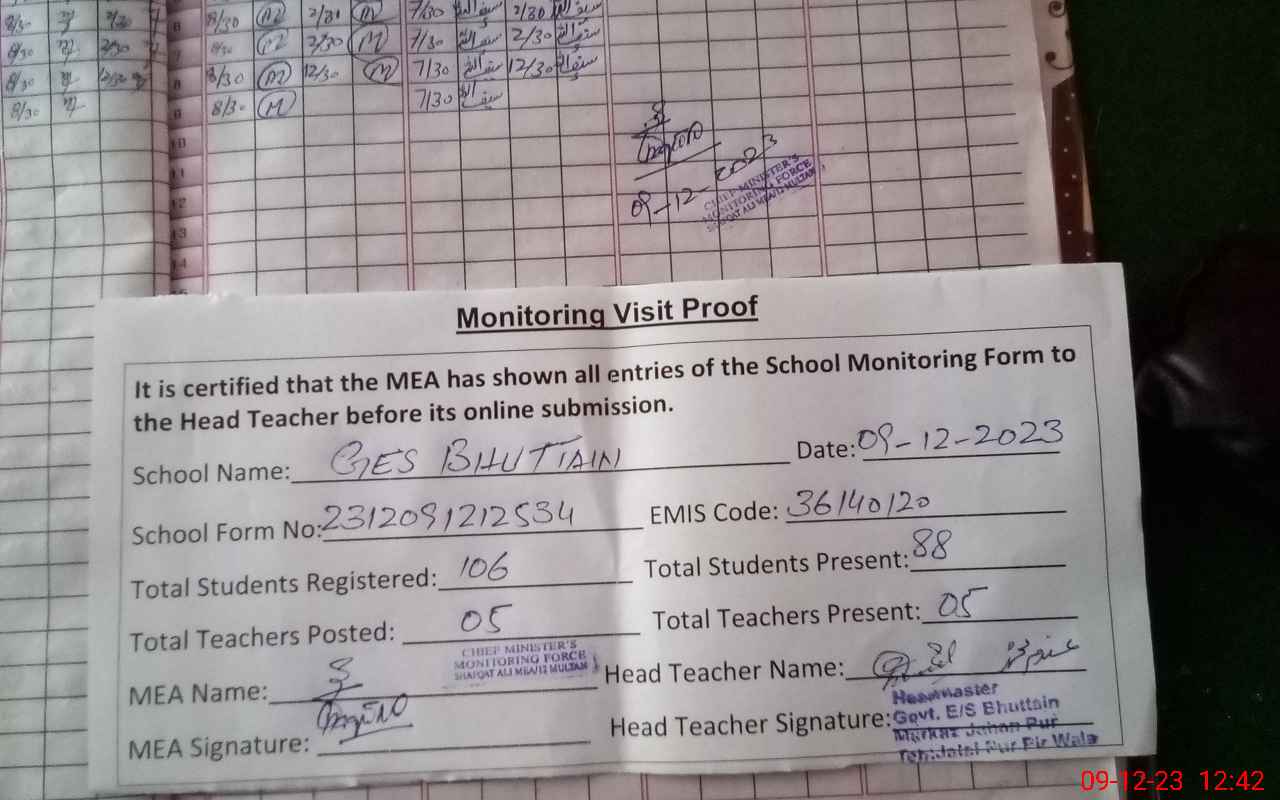 8/30 2/30 6 8/30 M 2/31 M 7/30 2/30
8/30 2/30 7 8/30 M 2/30 M 7/30 2/30
8/30 12/30 8 8/30 M 12/30 M 7/30 12/30
8/30 9 8/30 M 7/30
10
11
12
13
14
09-12-2023
CHIEF MINISTER'S
MONITORING FORCE
SHAFQAT ALI MEA/12 MULTAN
Monitoring Visit Proof
It is certified that the MEA has shown all entries of the School Monitoring Form to
the Head Teacher before its online submission.
School Name: GES BHUTIAIN Date: 09-12-2023
School Form No: 2312091212534 EMIS Code: 36140120
Total Students Registered: 106 Total Students Present: 88
Total Teachers Posted: 05 Total Teachers Present: 05
CHIEF MINISTER'S
MONITORING FORCE
SHAFQAT ALI MEA/12 MULTAN
MEA Name: Head Teacher Name:
MEA Signature: Head Teacher Signature:
Headmaster
Govt. E/S Bhuttain
Markaz Jahan Pur
Teh:Jalal Pur Pir Wala
09-12-23 12:42